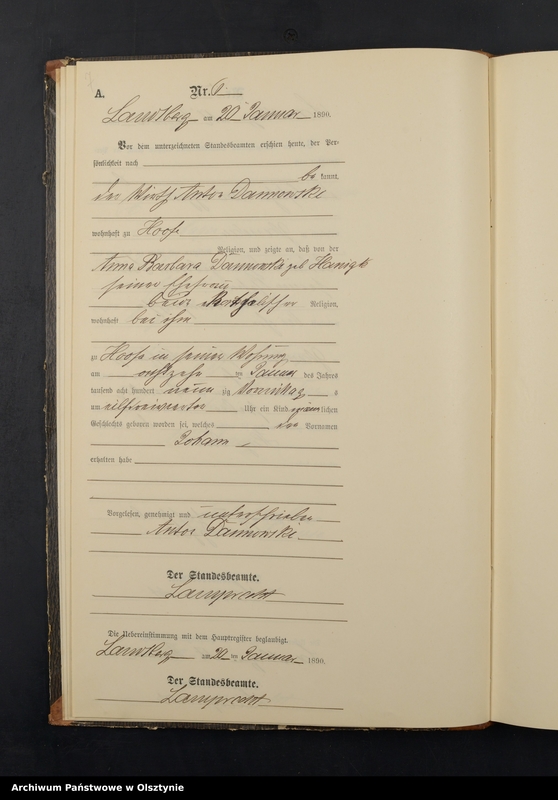 A. Nr.
Landsberg am 20 Januar 1890.
Vor dem unterzeichneten Standesbeamten erschien heute, der Per-
sönlichkeit nach
be kannt,
der Wirth Anton Dannowski
wohnhaft zu Hoofe
Religion, und zeigte an, daß von der
Anna Barbara Dannowski geb
seiner Ehefrau
beide katholischer Religion,
wohnhaft bei ihm
zu Hoofe in seiner Wohnung
am achtzehn ten Januar des Jahres
tausend acht hundert neun zig Vormittag s
um Uhr ein Kind männlichen
Geschlechts geboren worden sei, welches den Vornamen
Johann
erhalten habe
Vorgelesen, genehmigt und unterschrieben
Anton Dannowski
Der Standesbeamte.
Lamprecht
Die Uebereinstimmung mit dem Hauptregister beglaubigt.
Landsberg am 20 ten Januar 1890.
Der Standesbeamte.
Lamprecht
Archiwum Państwowe w Olsztynie